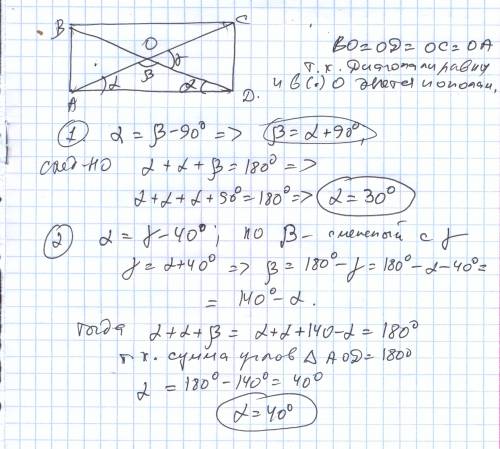 B
C
O
γ
β
α
α
A
D.
BO=OD=OC=OA
т.к. Диагонали равны
и в (·) O делятся пополам,
1. α = β-90° => β=α+90°,
след-но α+α+β=180° =>
α+α+α+90°=180° => α=30°
2 α = γ-40°; но β- смежный с γ
γ=α+40° => β=180°-γ=180°-α-40°=
= 140°-α.
тогда α+α+β= α+α+140-α=180°
т.к. сумма углов Δ AOD=180°
α =180°-140°=40°
α=40°